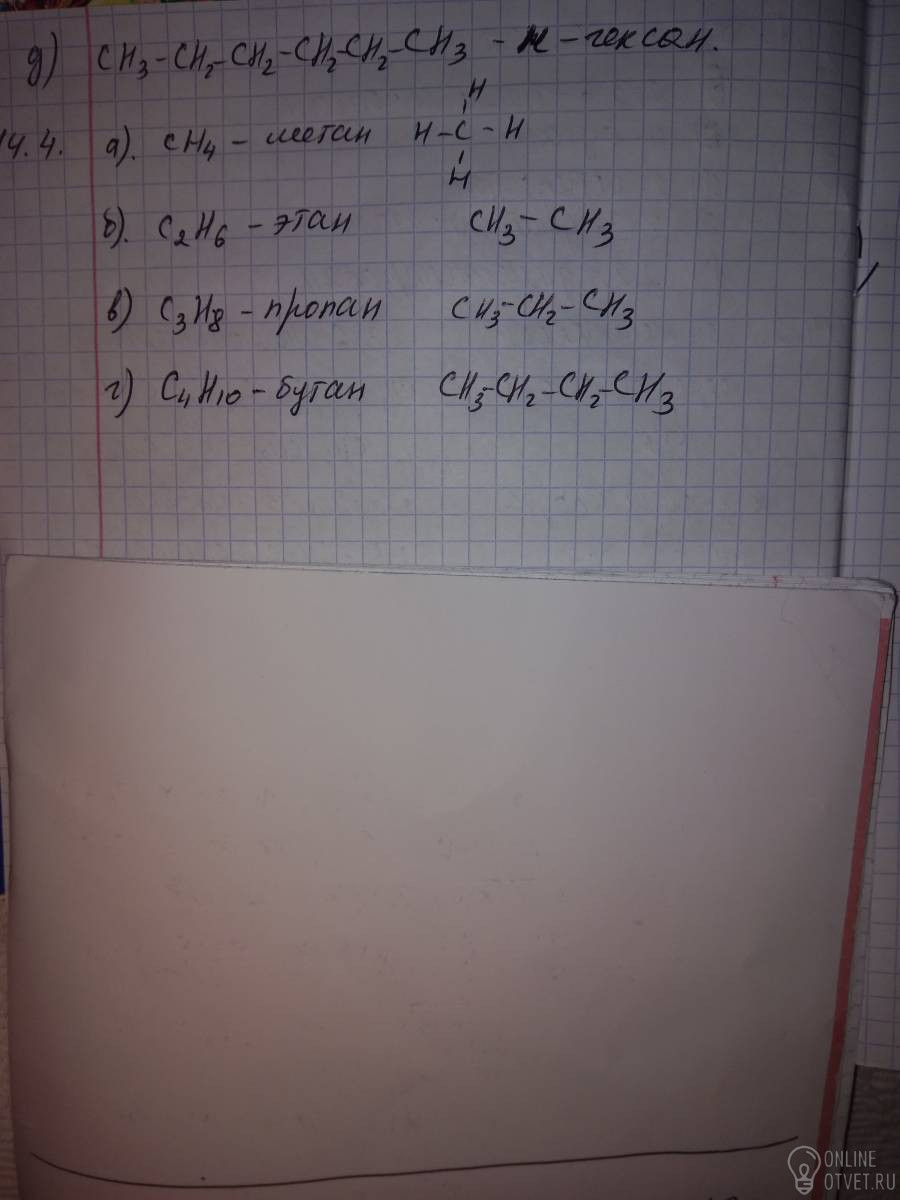 д) CH3-CH2-CH2-CH2-CH2-CH3 - н-гексан.
14.4. а). CH4 - метан
H
H-C-H
H
б). C2H6 - этан CH3-CH3
в) C3H8 - пропан CH3-CH2-CH3
г) C4H10 - бутан CH3-CH2-CH2-CH3
ONLINE
OTVET.RU